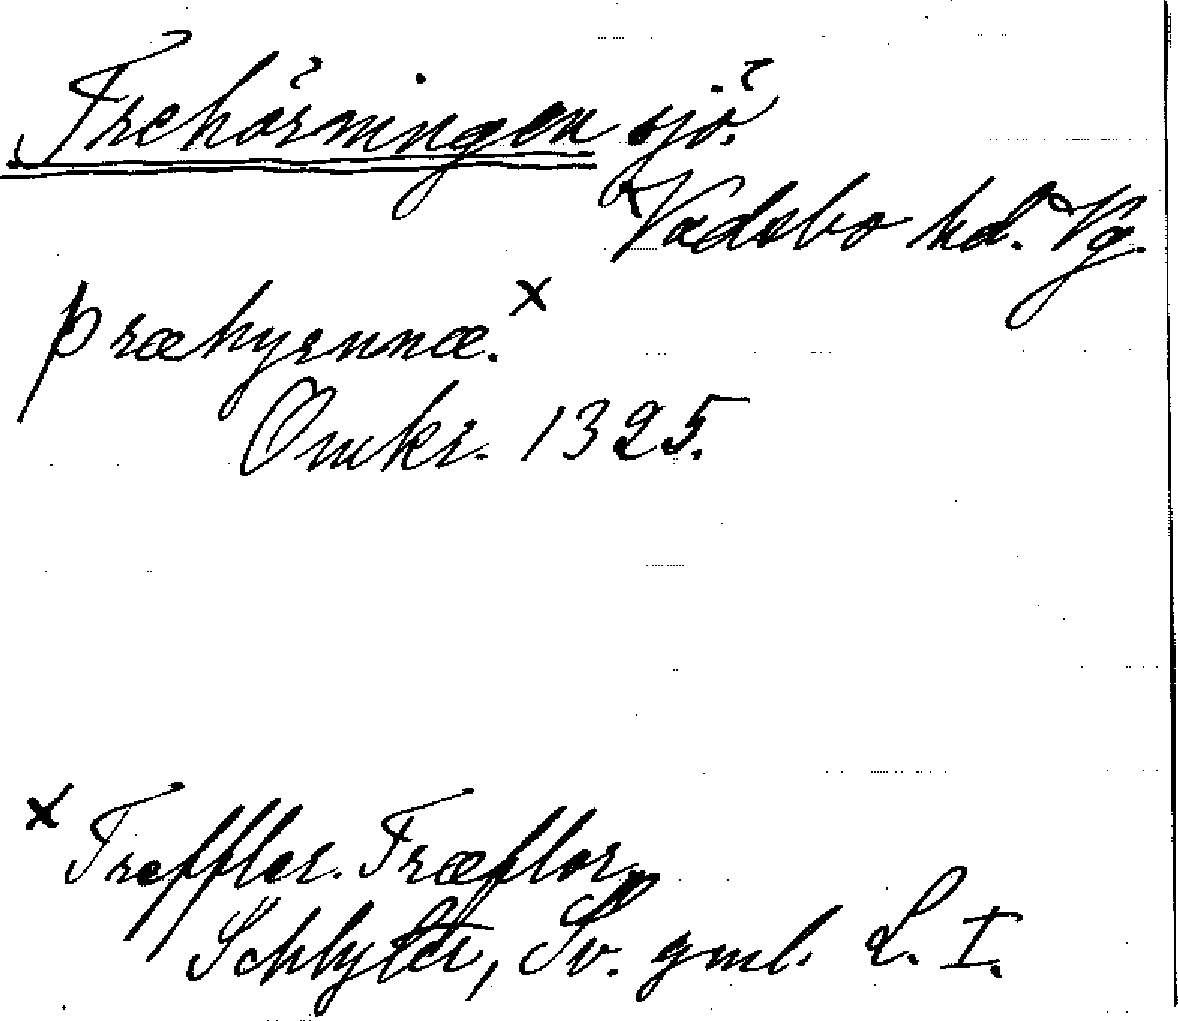 Trehörningen sjö.
Vadsbo hd. Vg.
þræhyrnnæ. x
Omkr. 1325.
x Treffler. Træflor,
Schlyter, Sv. gml. L. I.